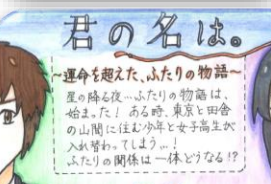 君の名は。
～運命を超えた、ふたりの物語～
星の降る夜…ふたりの物語は、
始まった！ある時、東京と田舎
の山間に住む少年と女子高生が
入れ替わってしまう…！
ふたりの関係は一体どうなる!?